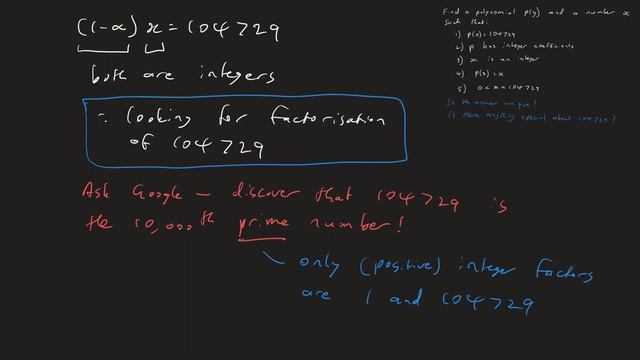 (1-α) x = 104729
both are integers
∴ looking for factorisation
of 104729
Ask Google – discover that 104729 is
the 10,000th prime number!
only (positive) integer factors
are 1 and 104729
Find a polynomial p(y) and a number x
such that:
1) p(0) = 104729
2) p has integer coefficients
3) x is an integer
4) p(x) = x
5) 0 < x < 104729
Is the answer unique?
Is there anything special about 104729?